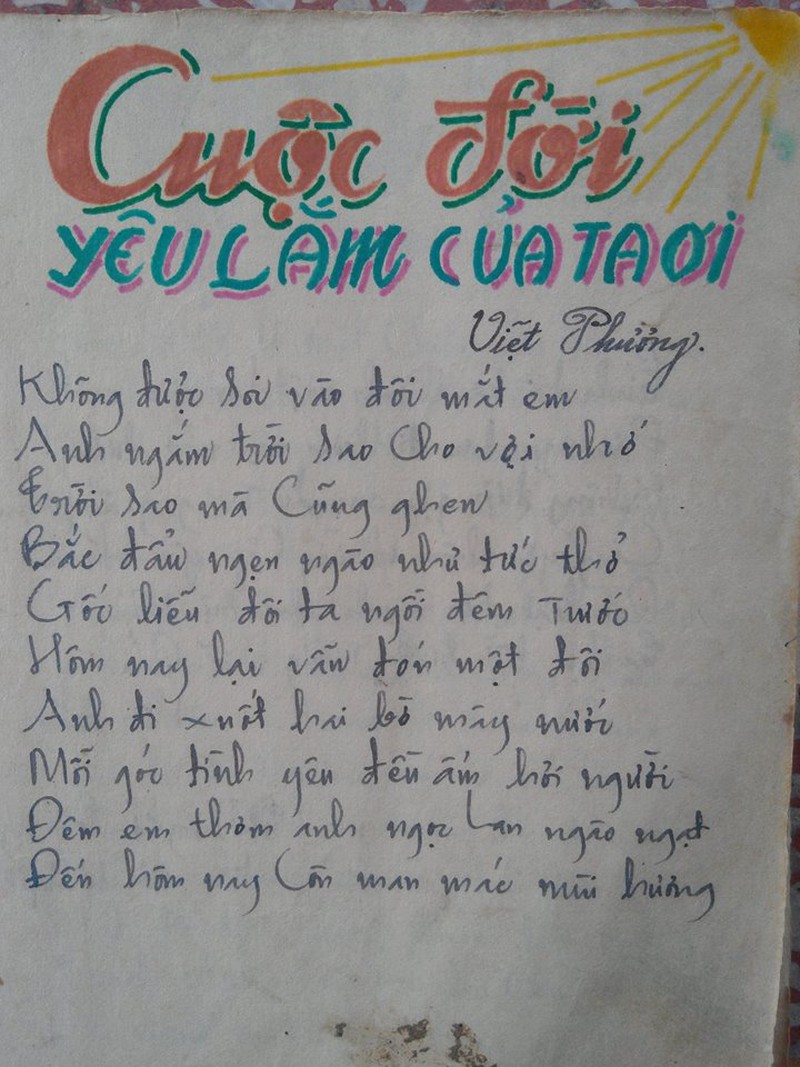 Cuộc đời
YÊU LẮM CỦA TA ƠI
Việt Phương.
Không được soi vào đôi mắt em
Anh ngắm trời sao cho vợi nhớ
Trời sao mà cũng ghen
Bắc đẩu nghẹn ngào như tức thở
Gốc liễu đôi ta ngồi đêm trước
Hôm nay lại vẫn đón một đôi
Anh đi suốt hai bờ mây nước
Mỗi góc tình yêu đều ấm hơi người
Đêm em thơm anh ngọc lan ngào ngạt
Đến hôm nay còn man mác mùi hương